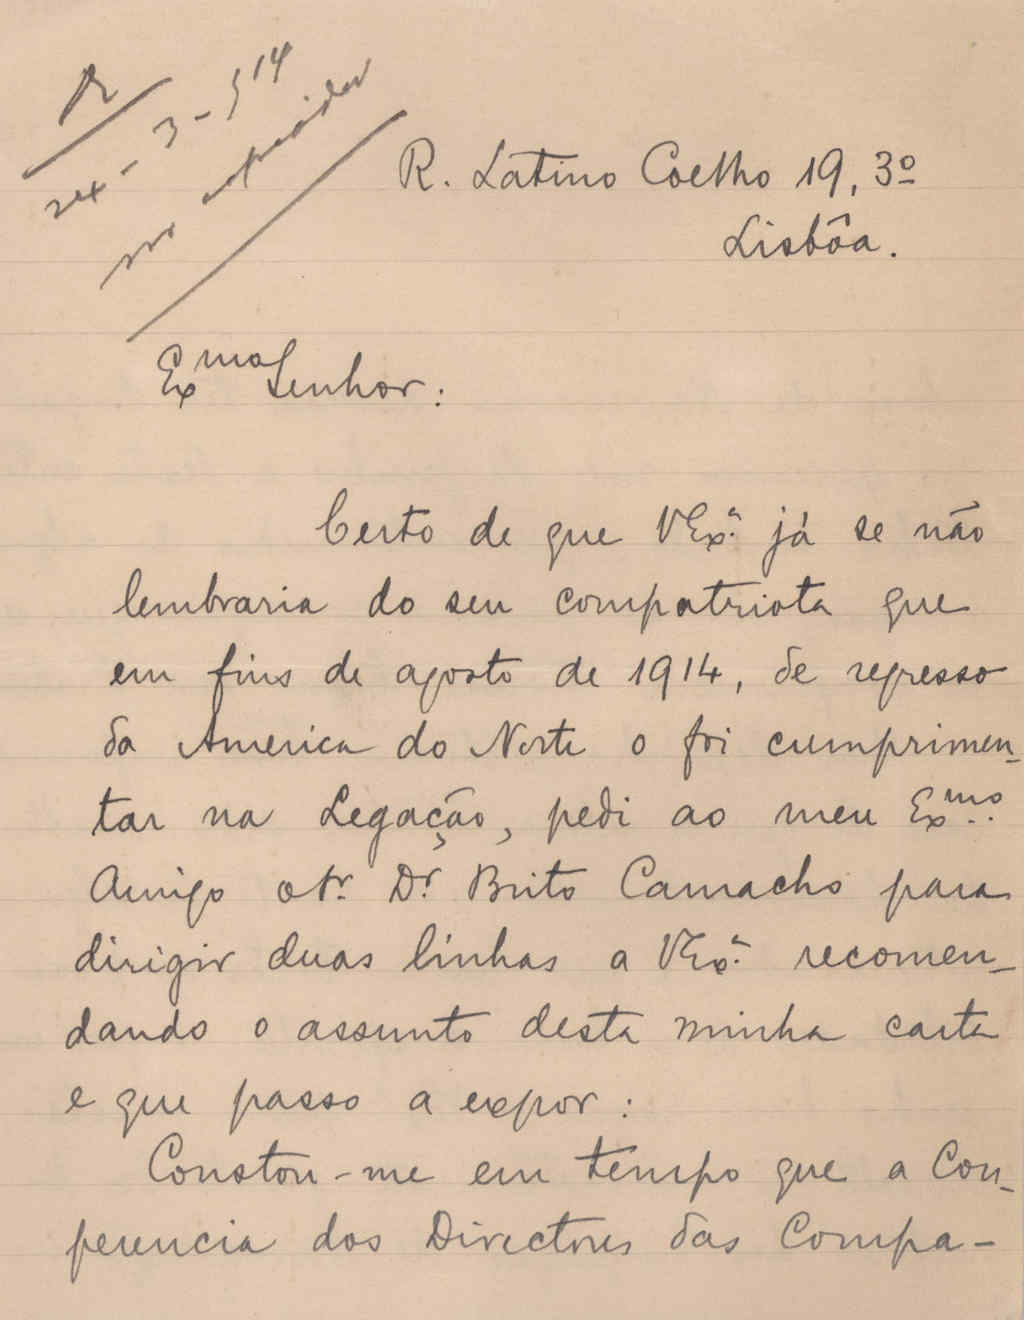 R
24 - 3 - 914
no copiador
R. Latino Coelho 19, 3º
Lisbôa.
Exmo Senhor:
Certo de que VExª. já se não
lembraria do seu compatriota que
em fins de agosto de 1914, de regresso
da America do Norte o foi cumprimen-
tar na Legação, pedi ao meu Exmo.
Amigo o Sr. Dr. Brito Camacho para
dirigir duas linhas a VExª. recomen-
dando o assunto desta minha carta
e que passo a expor:
Constou-me em tempo que a Con-
ferencia dos Directores das Compa-